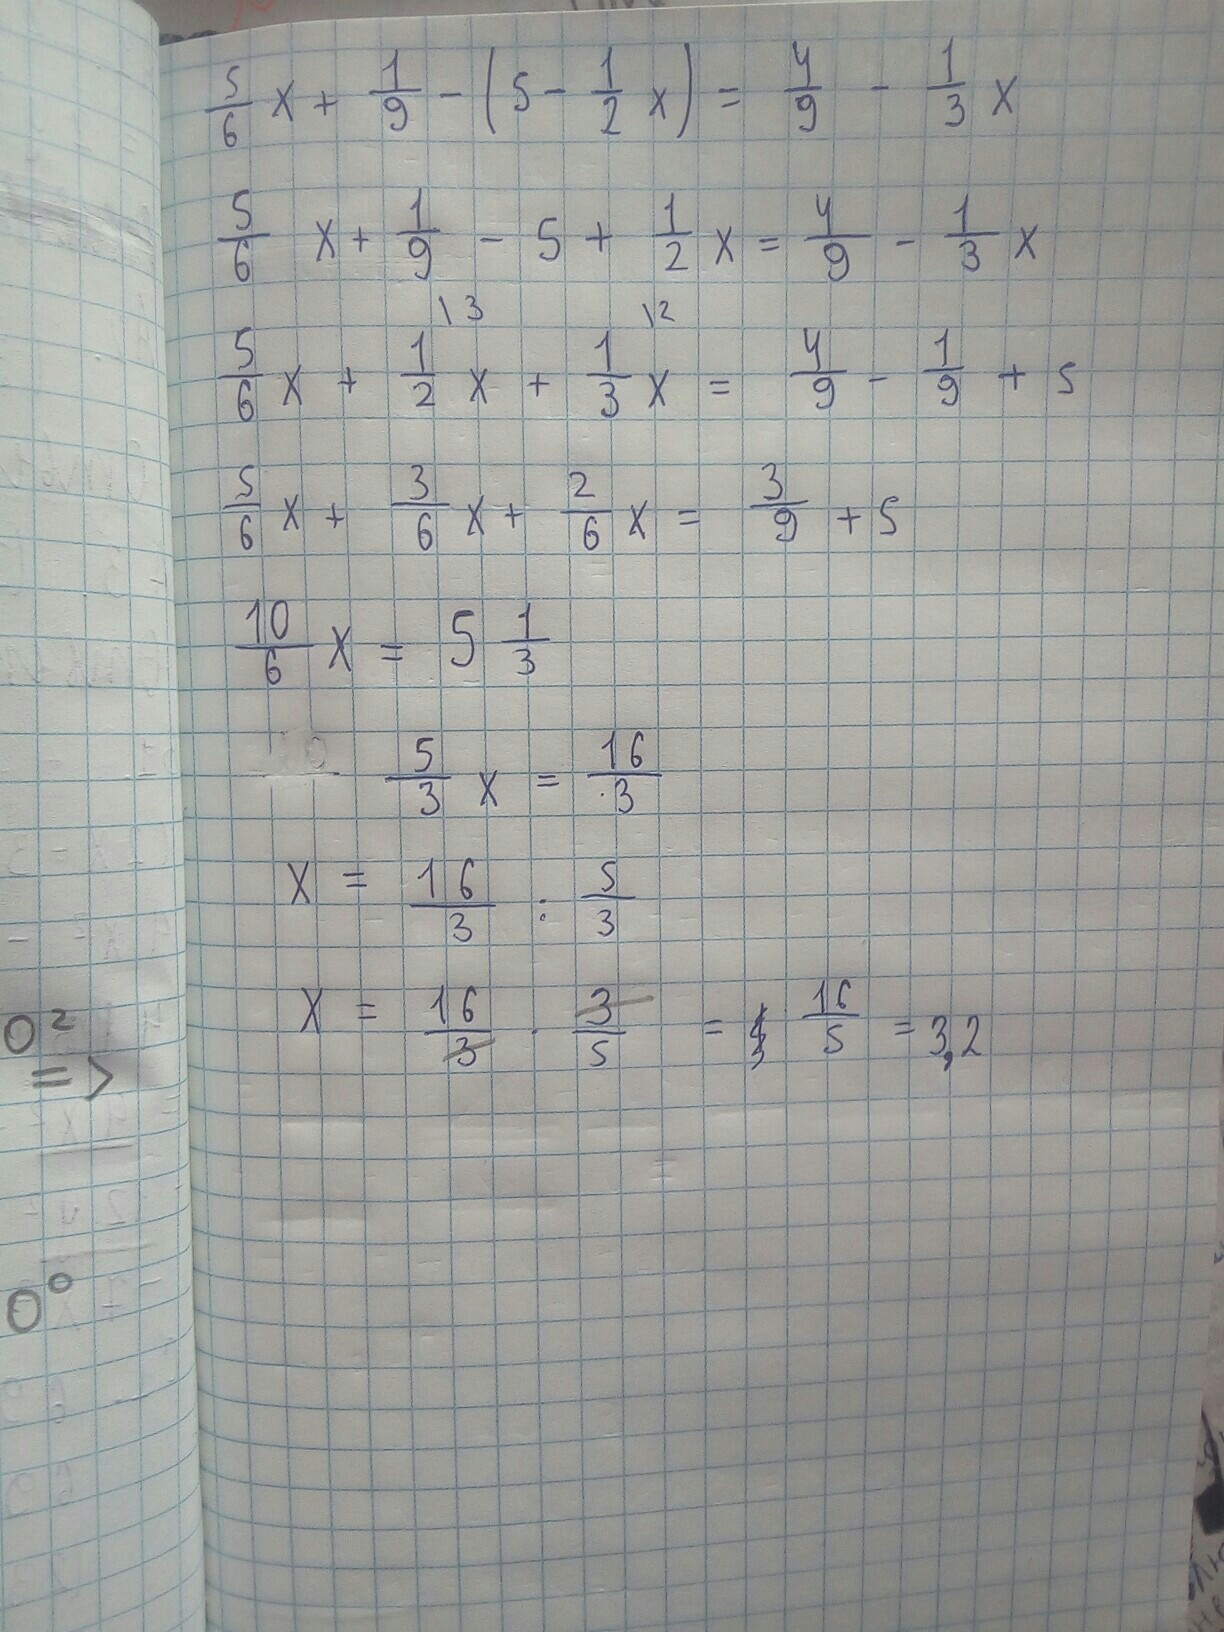 5/6 x + 1/9 - (5 - 1/2 x) = 4/9 - 1/3 x
5/6 x + 1/9 - 5 + 1/2 x = 4/9 - 1/3 x
5/6 x + 1/2 \3 x + 1/3 \2 x = 4/9 - 1/9 + 5
5/6 x + 3/6 x + 2/6 x = 3/9 + 5
10/6 x = 5 1/3
5/3 x = 16/3
x = 16/3 : 5/3
x = 16/3 · 3/5 = 16/5 = 3,2
0²
=>
0⁰